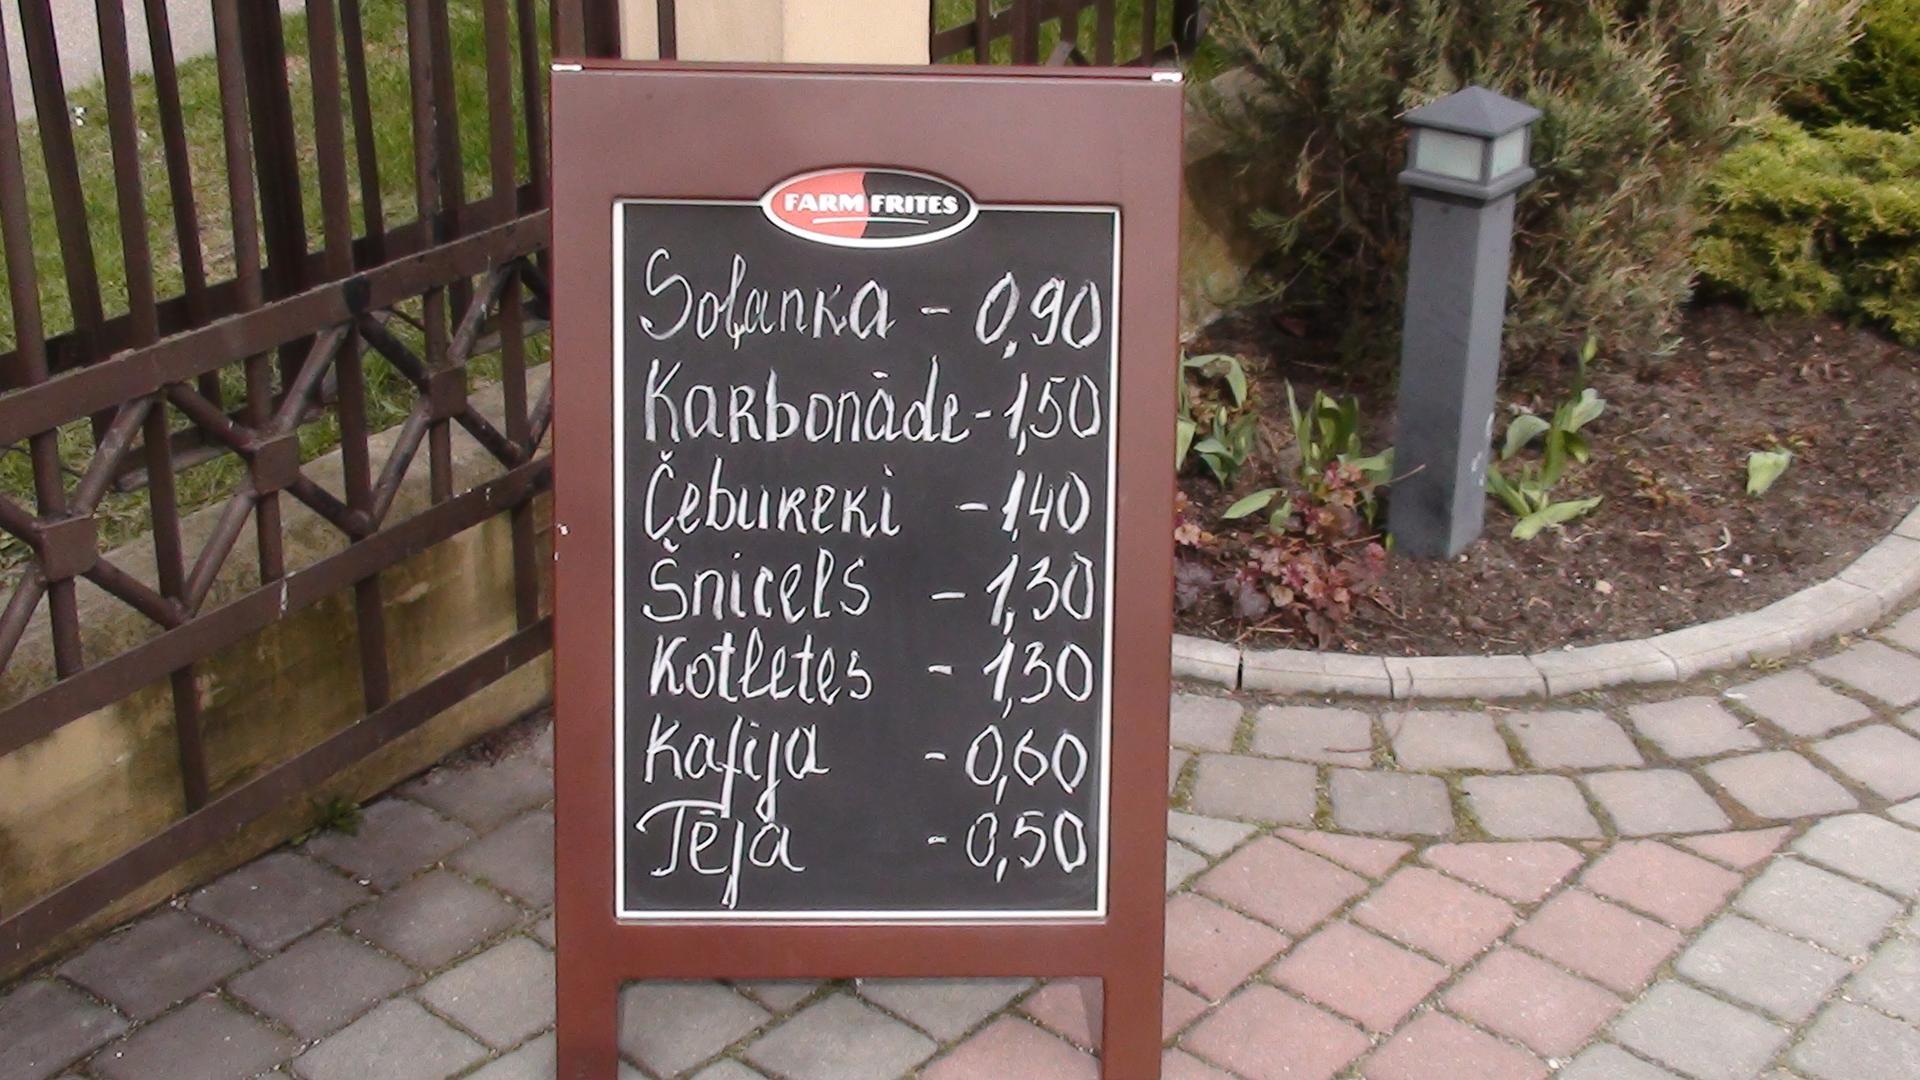 FARM FRITES
Soļanka - 0,90
Karbonāde - 1,50
Čebureki - 1,40
Šnicels - 1,30
Kotletes - 1,30
Kafija - 0,60
Tēja - 0,50